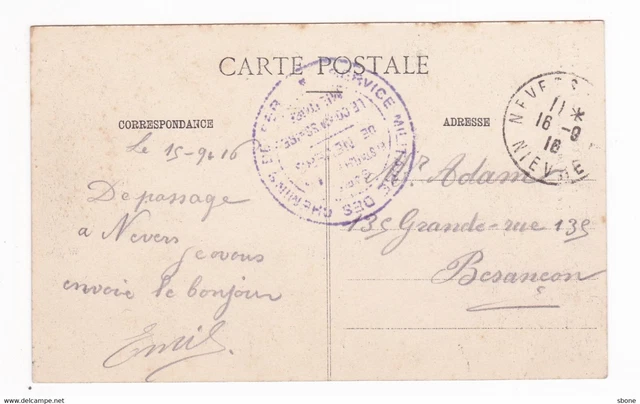 CARTE POSTALE
CORRESPONDANCE
ADRESSE
SERVICE MILITAIRE DES CHEMINS DE FER
DE NEVERS
NEVERS
11 *
16 - 9
16
NIEVRE
Le 15-9-16
De passage
a Nevers
Je vous
envoie le bonjour
Emil
Adam
135 Grande-rue 135
Besançon
www.delcampe.net
sbone